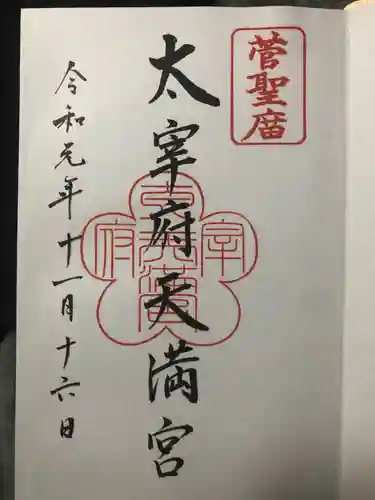 菅聖庿
太宰府天満宮
令和元年十一月十六日